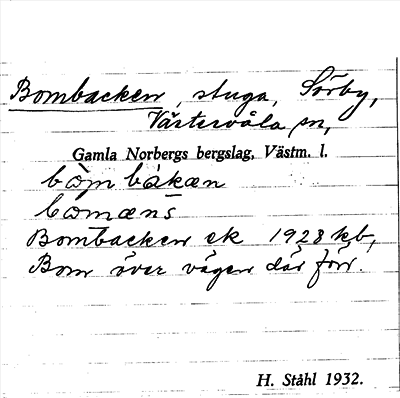 Bombacken, stuga, Sörby,
Västervåla sn,
Gamla Norbergs bergslag, Västm. l.
bòm bàkæn
bomæns
Bombacken ek 1923 kb,
Bom över vägen där förr.
H. Ståhl 1932.